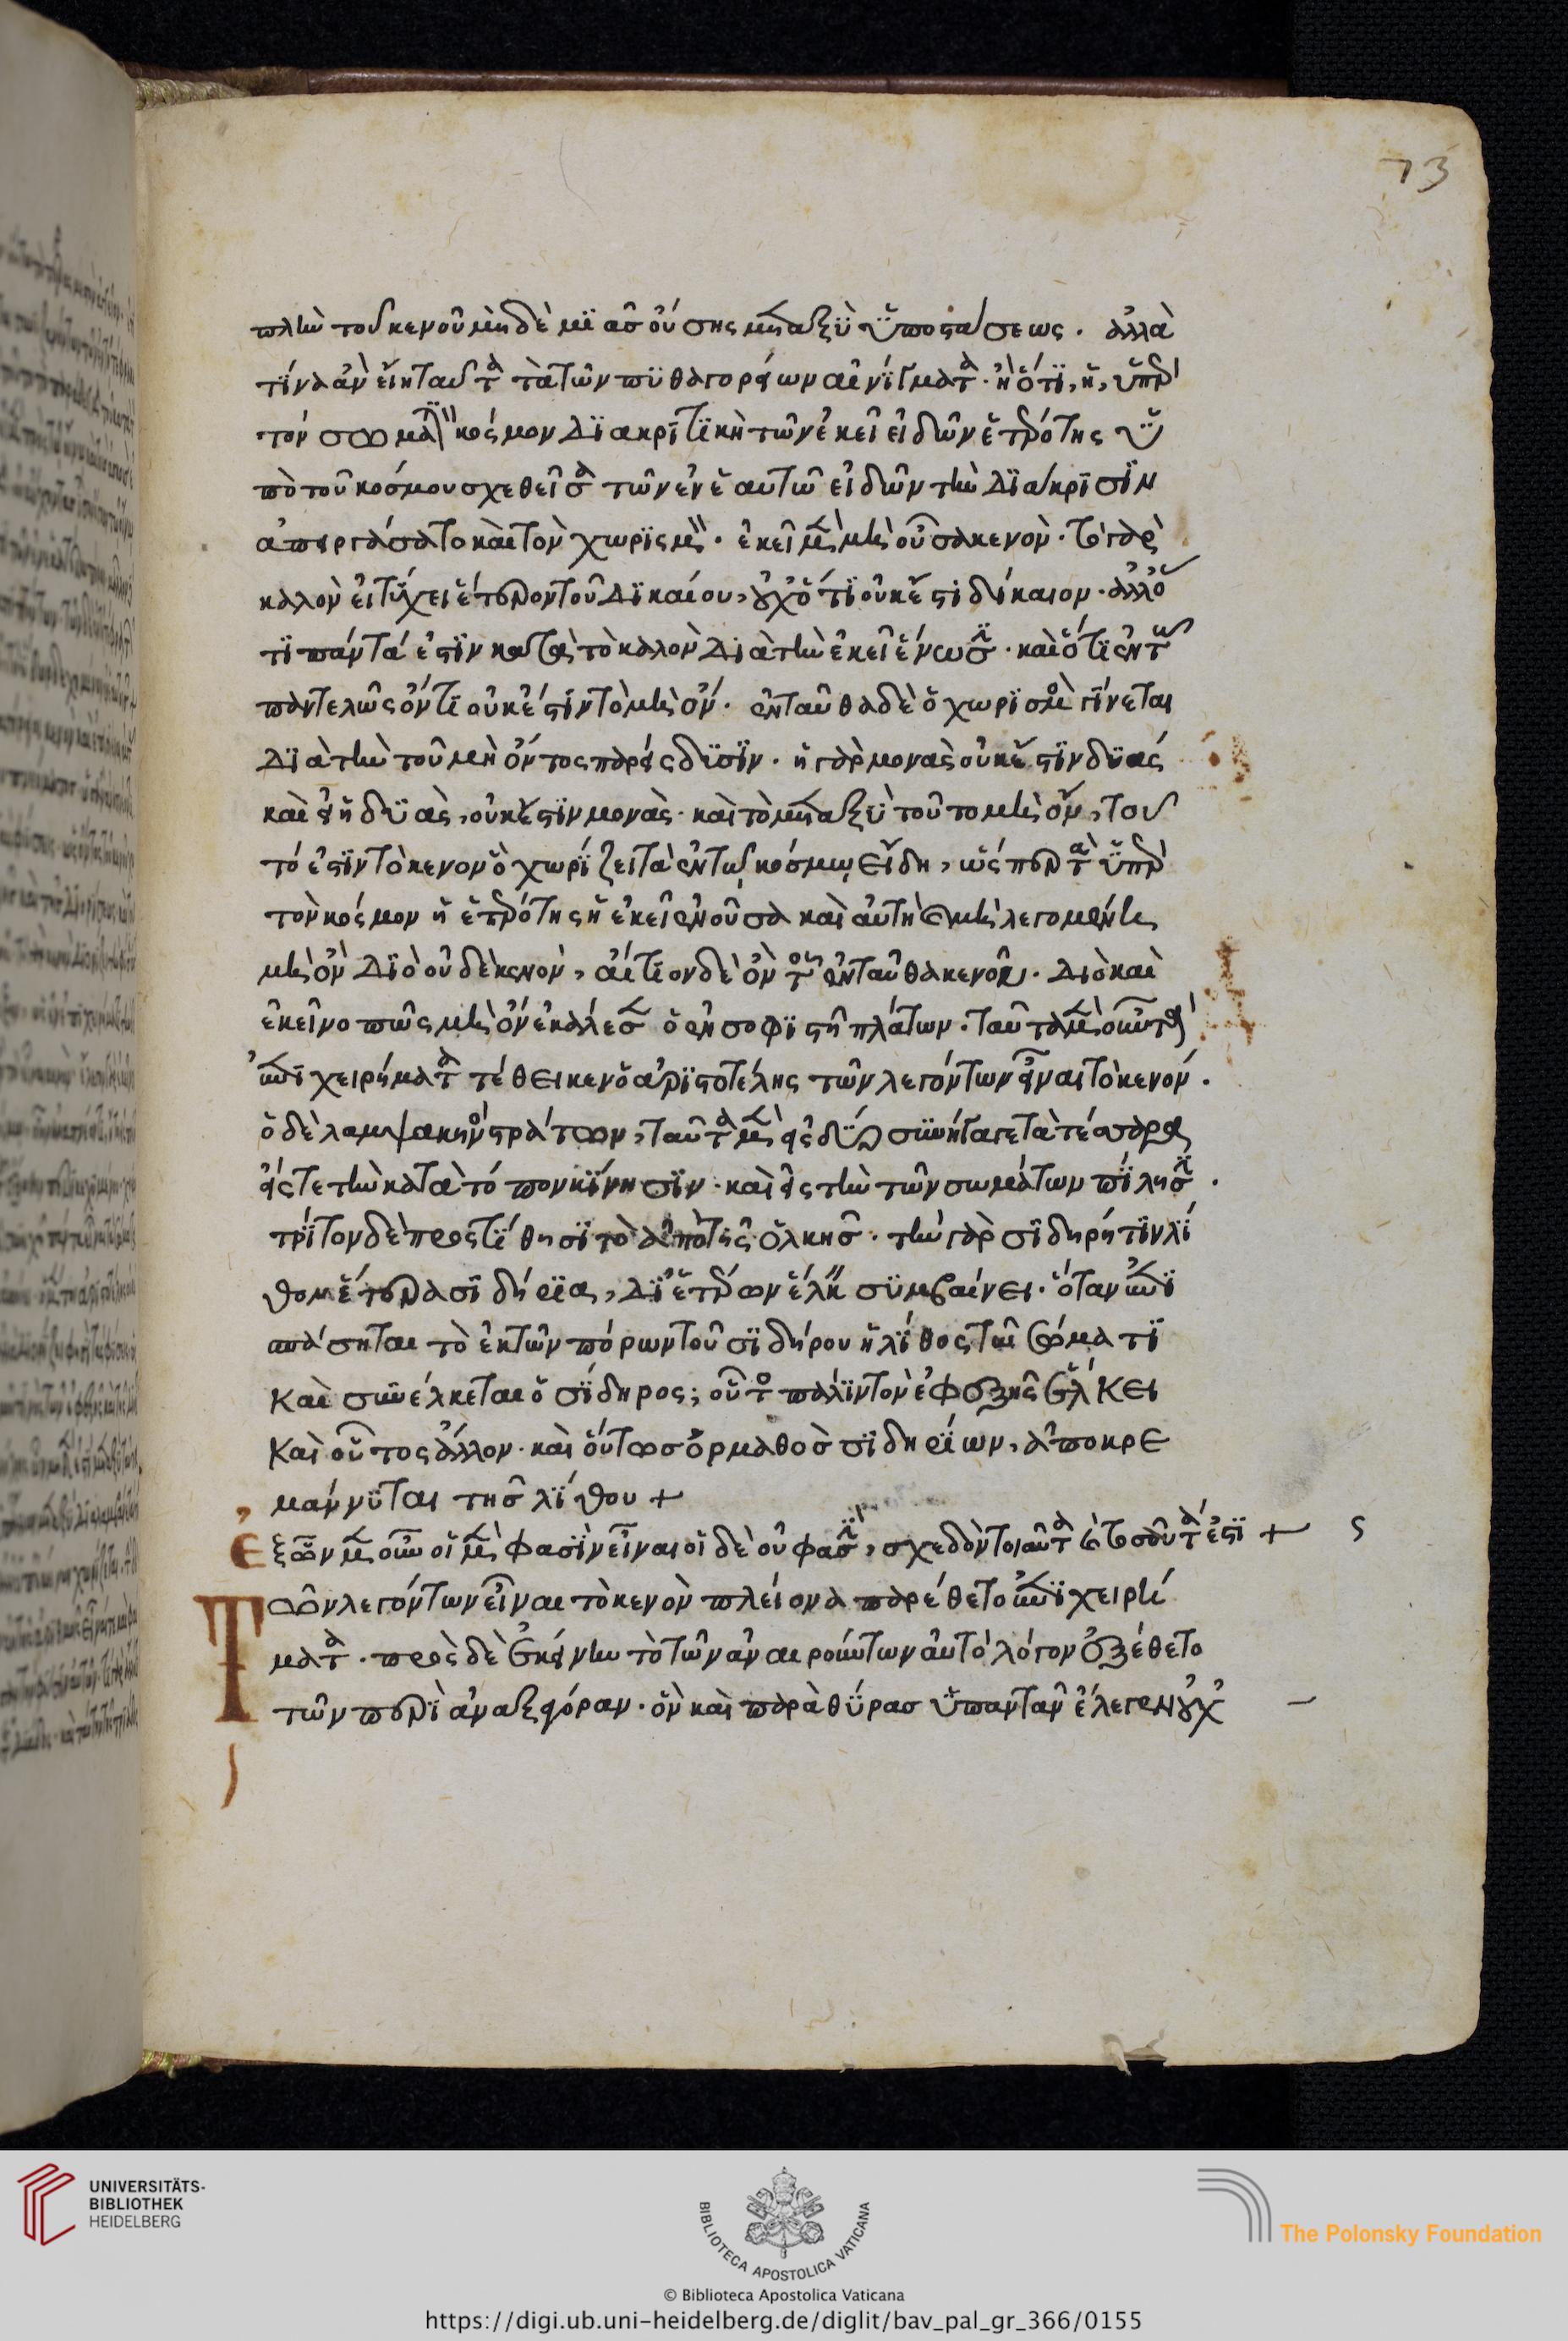 73
πλὴν τοῦ κενοῦ μηδὲ μιᾶς οὔσης μεταξὺ ὑποστάσεως. ἀλλὰ
τίνα ἂν εἴη ταῦτα τὰ τῶν πυθαγορείων αἰνίγματα. ἢ ὅτι, ἡ, ὑπὲρ
τὸν σωματικὸν κόσμον διακριτικὴ τῶν ἐκεῖ εἰδῶν ἑτερότης ὑ
πὸ τοῦ κόσμου σχεθεῖσα τῶν ἐν ἑαυτῷ εἰδῶν τὴν διάκρισιν
ἀπειργάσατο καὶ τὸν χωρισμόν. ἐκεῖ μὲν μὴ οὖσα κενὸν. τὸ γὰρ
καλὸν εἰ τύχει ἕτερον τοῦ δικαίου, οὐχ ὅτι οὐκ ἔστι δίκαιον. ἀλλ' ὅ
τι πάντα ἐστὶν κατὰ τὸ καλὸν διὰ τὴν ἐκεῖ ἕνωσιν. καὶ ὅτι ἐν τῷ
παντελῶς ὄντι οὐκ ἔστιν τὸ μὴ ὄν. ἐνταῦθα δὲ ὁ χωρισμὸς γίνεται
διὰ τὴν τοῦ μὴ ὄντος παρείσδυσιν. ἡ γὰρ μονὰς οὐκ ἔστιν δυάς
καὶ ἡ δυὰς, οὐκ ἔστιν μονὰς. καὶ τὸ μεταξὺ τοῦτο μὴ ὄν, τοῦ
τό ἐστιν τὸ κενὸν ὃ χωρίζει τὰ ἐν τῷ κόσμῳ εἴδη, ὥσπερ τὰ ὑπὲρ
τὸν κόσμον ἡ ἑτερότης ἡ ἐκεῖ ἐνοῦσα καὶ αὐτὴ μὴ λεγομένη
μὴ ὂν διὸ οὐδὲ κενὸν, αἴτιον δὲ ὂν τοῦ ἐνταῦθα κενοῦ. διὸ καὶ
ἐκεῖνο πῶς μὴ ὂν ἐκάλεσεν ὁ ἐν σοφιστῇ πλάτων. ταῦτα μὲν οὖν τὰ
ἐπιχειρήματα τέθεικεν ὁ ἀριστοτέλης τῶν λεγόντων εἶναι τὸ κενόν.
ὁ δὲ λαμψακηνὸς στράτων, ταῦτα μὲν εἰς δύο συνήγαγε τὰ τέσσαρα
εἴς τε τὴν κατὰ τόπον κίνησιν. καὶ εἰς τὴν τῶν σωμάτων πίλησιν.
τρίτον δὲ προστίθησι τὸ ἀπὸ τῆς ὁλκῆς. τὴν γὰρ σιδηρῆτιν λί
θον ἕτερα σιδήρια, δι' ἑτέρων ἕλκειν συμβαίνει. ὅταν ἐπι
σπάσηται τὸ ἐκ τῶν πόρων τοῦ σιδήρου ἡ λίθος τῷ σώματι
καὶ συνέλκεται ὁ σίδηρος; οὗτος πάλιν τὸν ἐφεξῆς ἕλκει
καὶ οὗτος ἄλλον. καὶ οὕτως ὁρμαθὸς σιδηρίων, ἀποκρε
μάννυται τῆς λίθου +
ἐξ ὧν μὲν οὖν οἱ μὲν φασὶν εἶναι οἱ δὲ οὔ φασι, σχεδὸν τοιαῦτα καὶ τοσαῦτά ἐστι +
Τῶν λεγόντων εἶναι τὸ κενὸν πλείονα παρέθετο ἐπιχειρή
ματα. πρὸς δὲ ἐκείνην τὸ τῶν ἀναιρούντων αὐτὸ λόγον ἐξέθετο
τῶν περὶ ἀναξαγόραν. ὃν καὶ παρὰ θύρας ὑπαντᾶν ἔλεγεν οὐχ
UNIVERSITÄTS-
BIBLIOTHEK
HEIDELBERG
BIBLIOTECA APOSTOLICA VATICANA
The Polonsky Foundation
© Biblioteca Apostolica Vaticana
https://digi.ub.uni-heidelberg.de/diglit/bav_pal_gr_366/0155